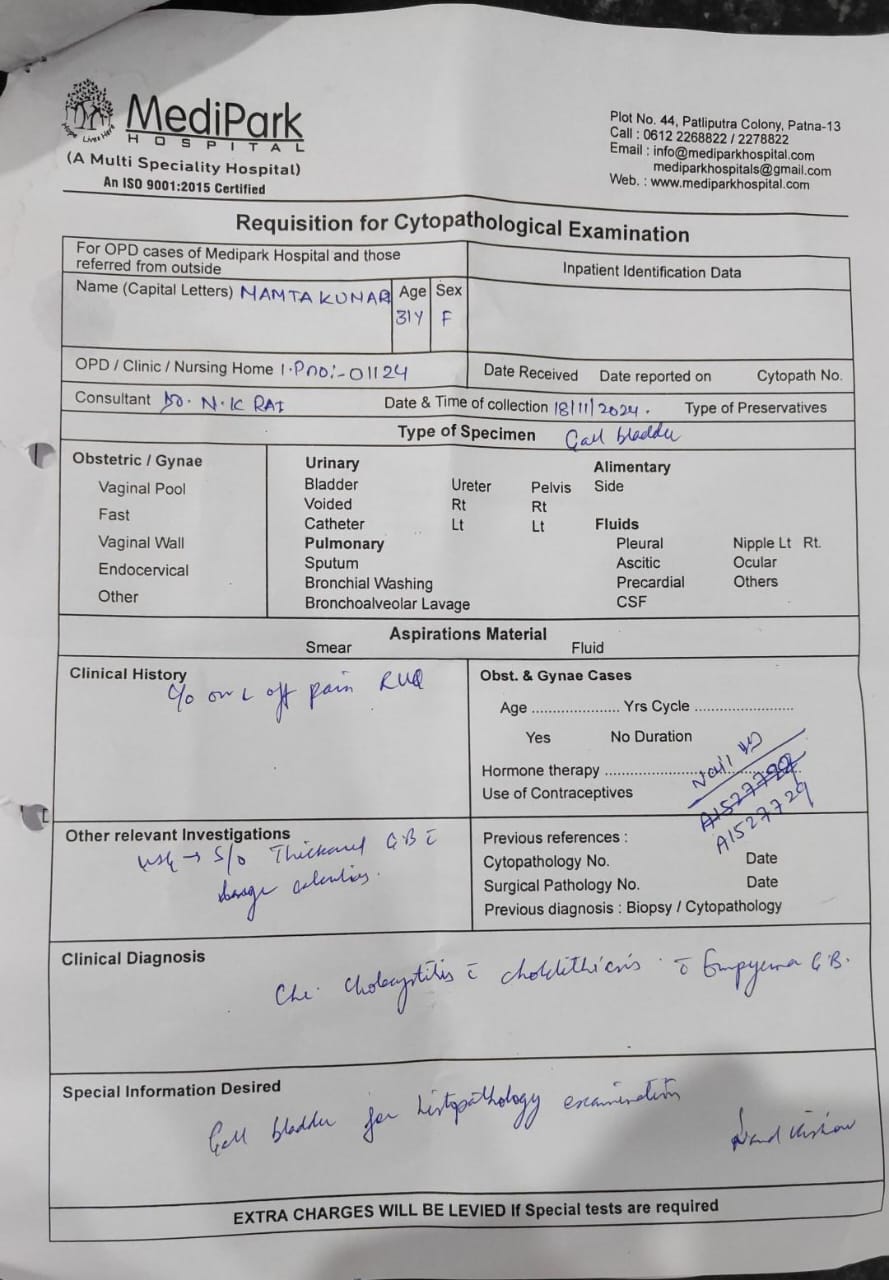 Hope Lives Here
MediPark
HOSPITAL
(A Multi Speciality Hospital)
An ISO 9001:2015 Certified
Plot No. 44, Patliputra Colony, Patna-13
Call : 0612 2268822 / 2278822
Email : info@mediparkhospital.com
mediparkhospitals@gmail.com
Web. : www.mediparkhospital.com
Requisition for Cytopathological Examination
For OPD cases of Medipark Hospital and those
referred from outside
Inpatient Identification Data
Name (Capital Letters) MAMTA KUMARI
Age Sex
31Y F
OPD / Clinic / Nursing Home I.P no:- 01124
Date Received Date reported on Cytopath No.
Consultant Dr. N.K RAI
Date & Time of collection 18/11/2024. Type of Preservatives
Type of Specimen Gall bladder
Obstetric / Gynae
Vaginal Pool
Fast
Vaginal Wall
Endocervical
Other
Urinary
Bladder Ureter Pelvis
Voided Rt Rt
Catheter Lt Lt
Pulmonary
Sputum
Bronchial Washing
Bronchoalveolar Lavage
Alimentary
Side
Fluids
Pleural Nipple Lt Rt.
Ascitic Ocular
Precardial Others
CSF
Aspirations Material
Smear Fluid
Clinical History
c/o on & off pain RUQ
Obst. & Gynae Cases
Age .................... Yrs Cycle .......................
Yes No Duration
Hormone therapy
Use of Contraceptives
A1527729
A1527729
Other relevant Investigations
USG → S/o Thickened GB c̄
calculus.
Previous references :
Cytopathology No. Date
Surgical Pathology No. Date
Previous diagnosis : Biopsy / Cytopathology
Clinical Diagnosis
Chr. Cholecystitis c̄ cholelithiasis c̄ Empyema G.B.
Special Information Desired
Gall bladder for histopathology examination
Nand Kishor
EXTRA CHARGES WILL BE LEVIED If Special tests are required